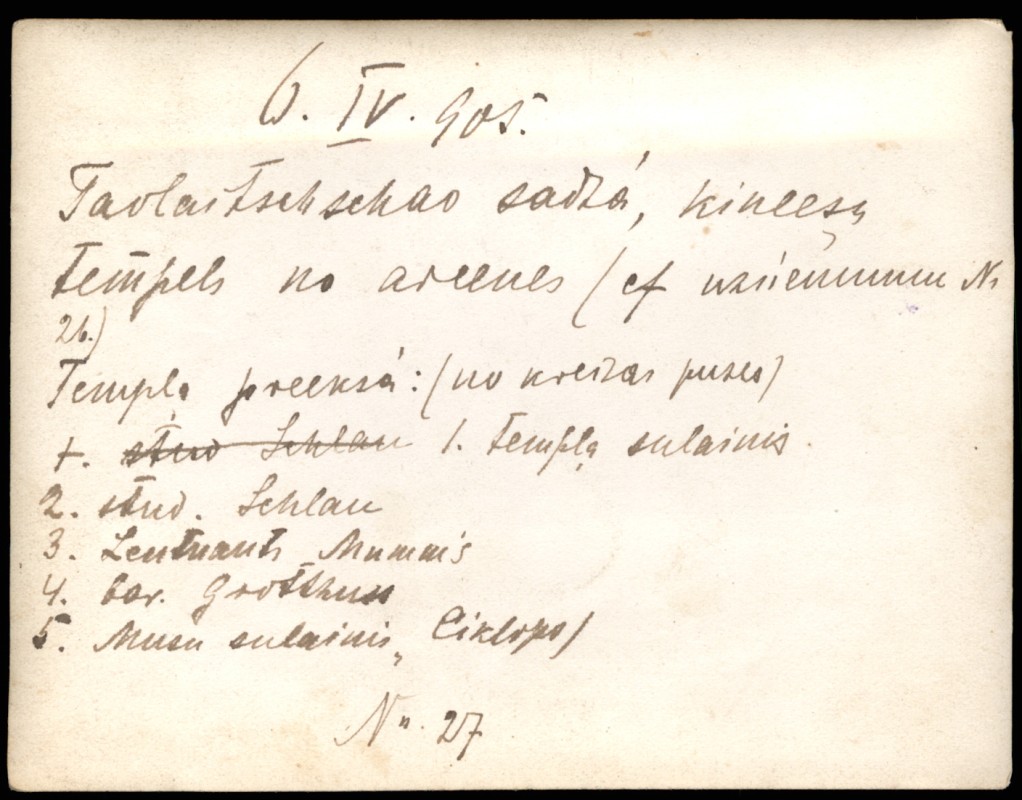 6. IV. 905.
Taolaitschschao sadžá, kineešu
tempels no areenes (cf uzņēmumu N:
26.)
Templa preeksá: (no kreisas puses)
1. stud Schlau 1. templa sulainis.
2. stud. Schlau
3. Leutnants Mummis
4. bar. Grotthuss
5. Musu sulainis „Ciklops)
No. 27